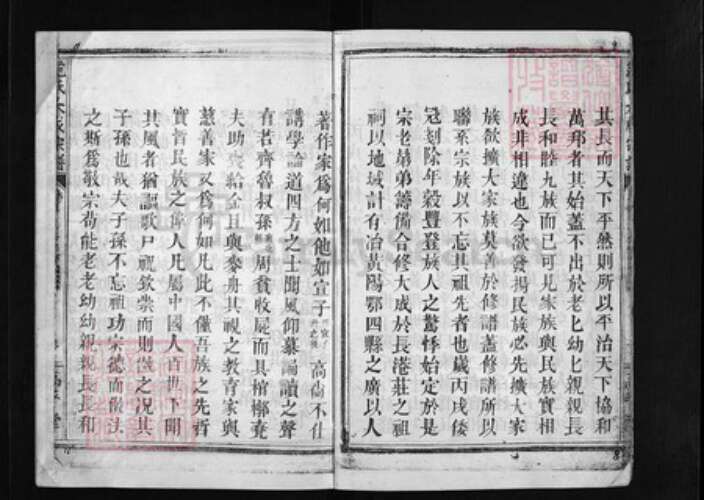 其長而天下平然則所以平治天下協和
萬邦者其始蓋不出於老七幼七親親長
長和睦九族而已可見家族與民族實相
成非相違也今欲發揚民族必先擴大家
族欲擴大家族莫善於修譜蓋修譜所以
聯系宗族以不忘其祖先者也歲丙戌倭
寇剗除年穀豐登族人之驚悸始定於是
宗老弟籌備合修大成於長港莊之祖
祠以地域計有冶黃陽鄂四縣之廣以人
著作家為何如他如宣子高尚不仕
講學論道四方之士聞風仰慕誦讀之聲
有若齊魯叔孫周貧收屍而具棺槨堯
夫助喪給金且與麥舟其視之教育家與
慈善家又為何如凡此不僅吾族之先哲
實皆民族之偉人凡屬中國人百世下聞
其風者猶謳歌尸祝欽崇而則傚之况其
子孫也哉夫子孫不忘祖功宗德而傚法
之斯為敬宗苟能老老幼幼親親長長和